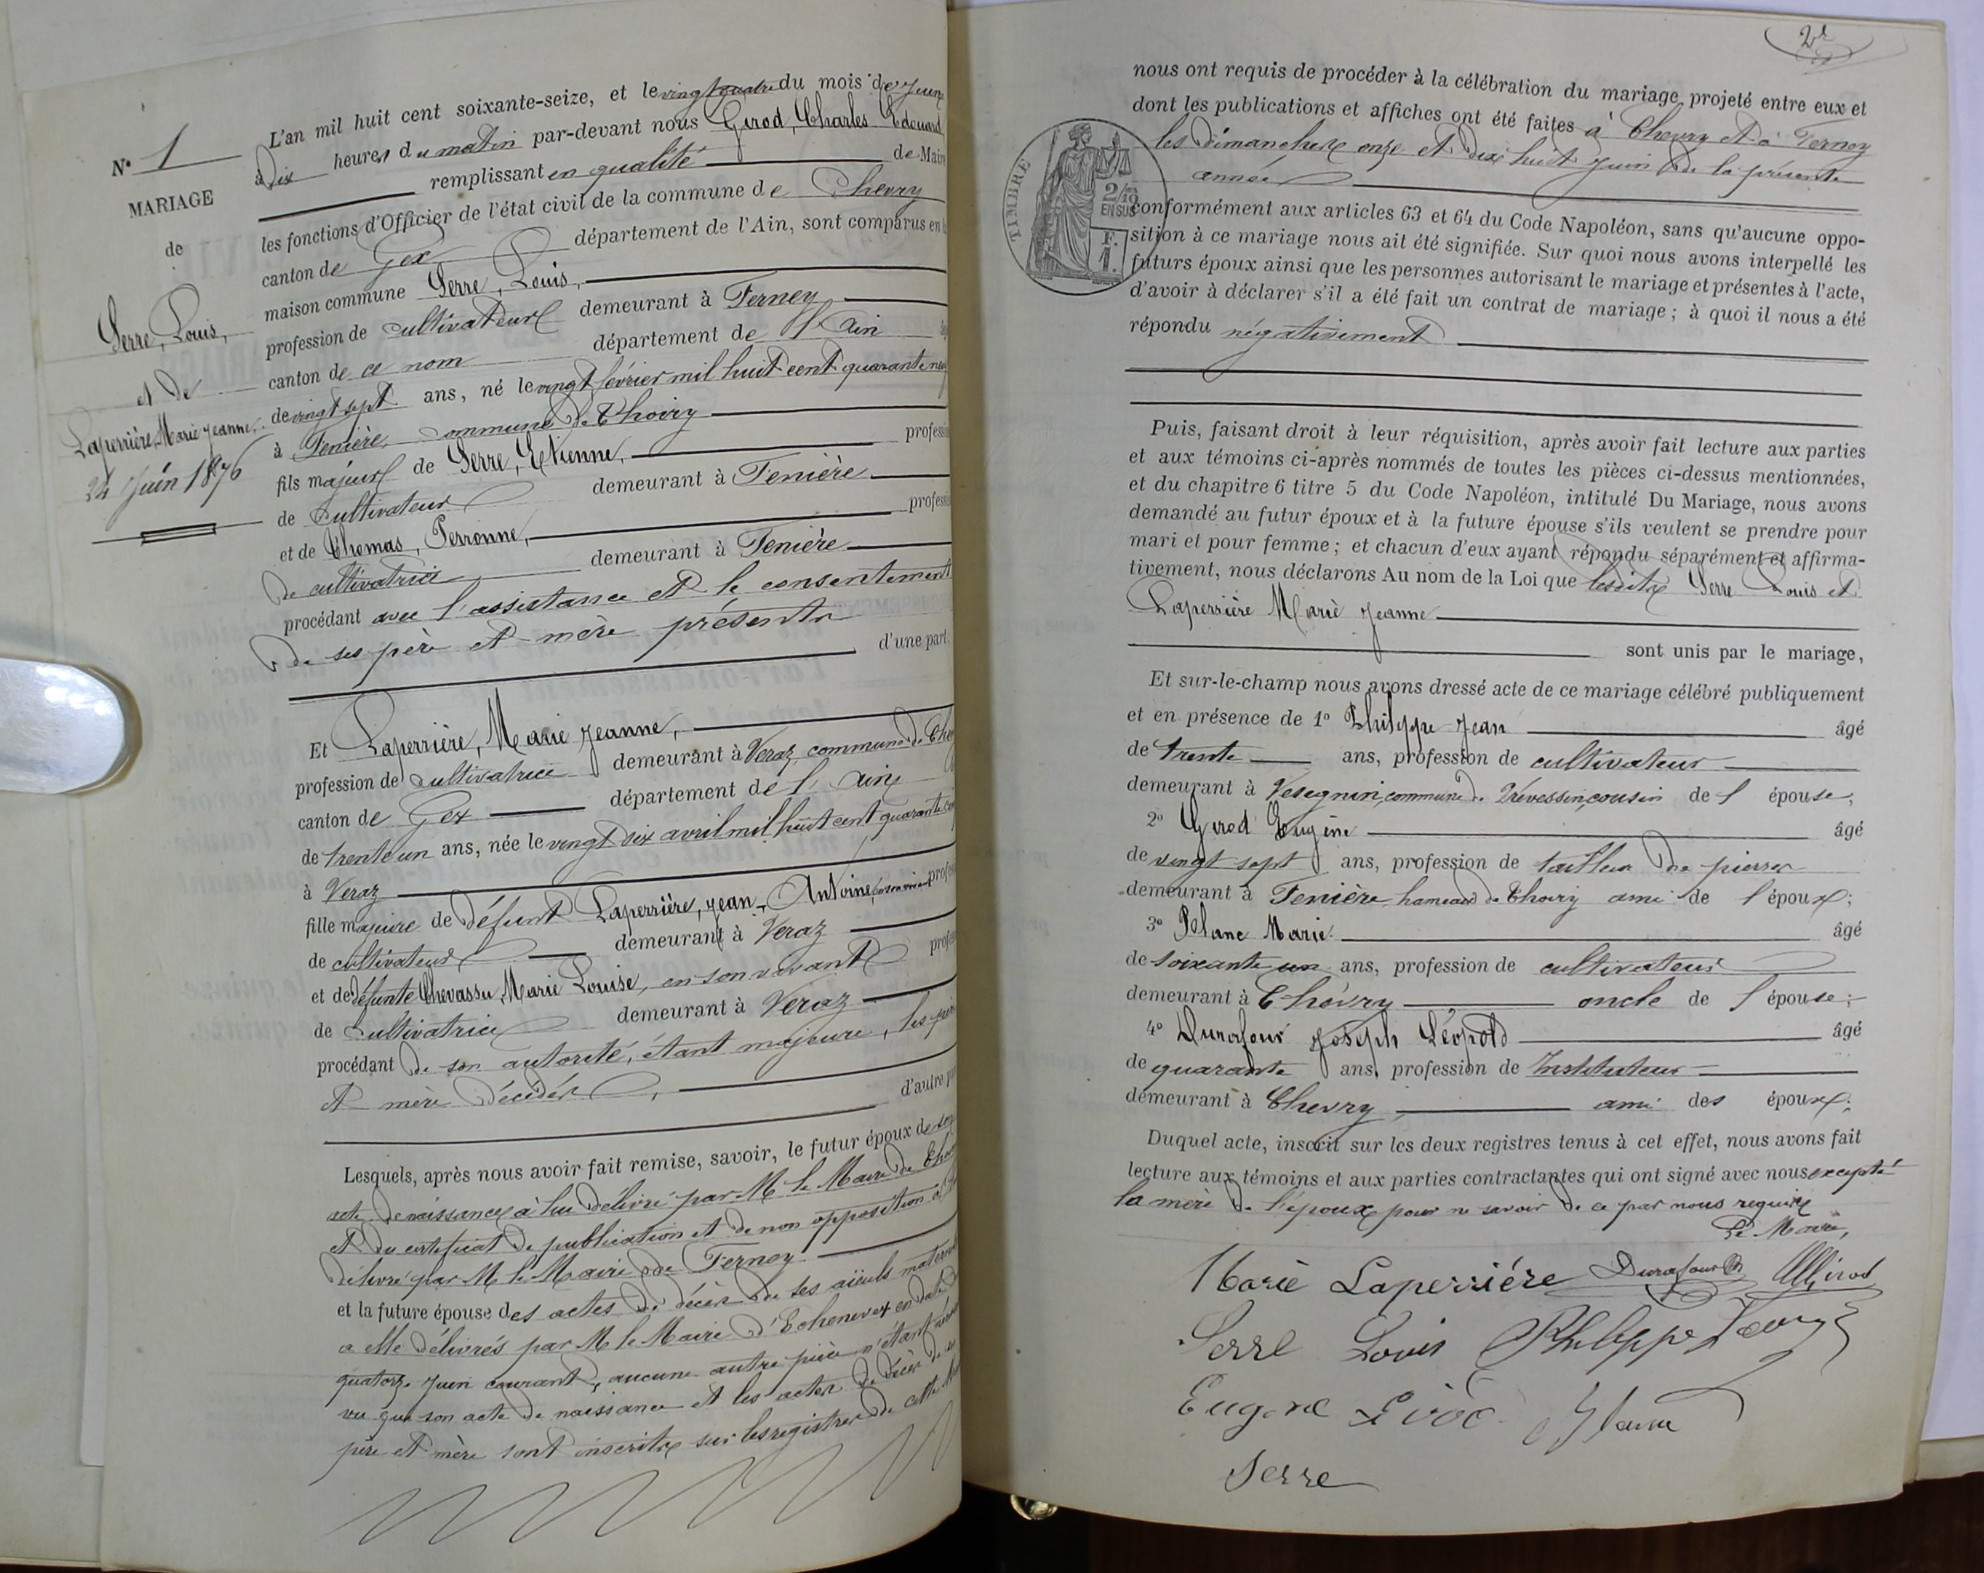 N° 1
MARIAGE
de
Serre, Louis,
et de
Laperrière, Marie Jeanne,
24 Juin 1876
L'an mil huit cent soixante-seize, et le vingt quatre du mois de Juin
à dix heures du matin par-devant nous Girod, Charles Edouard
remplissant en qualité de Maire
les fonctions d'Officier de l'état civil de la commune de Chevry
canton de Gex département de l'Ain, sont comparus en la
maison commune Serre, Louis,
profession de cultivateur demeurant à Ferney
canton de ce nom département de l'Ain
de vingt sept ans, né le vingt février mil huit cent quarante neuf
à Fenière, commune de Thoiry
fils majeur de Serre, Etienne, profession
de cultivateur demeurant à Fenière
et de Thomas, Perronne, profession
de cultivatrice demeurant à Fenière
procédant avec l'assistance et le consentement
de ses père et mère présents
d'une part.
Et Laperrière, Marie Jeanne,
profession de cultivatrice demeurant à Veraz commune de
canton de Gex département de l'Ain
de trente un ans, née le vingt six avril mil huit cent quarante
à Veraz
fille majeure de défunt Laperrière, Jean-Antoine,
de cultivateur demeurant à Veraz
et de défunte Chevassu, Marie Louise, en son vivant
de cultivatrice demeurant à Veraz
procédant de son autorité, étant majeure, les père
et mère décédés,
d'autre part
Lesquels, après nous avoir fait remise, savoir, le futur époux de son
acte de naissance à lui délivré par M. le Maire de
et du certificat de publication et de non opposition à
délivré par M. le Maire de Ferney
et la future épouse des actes de décès de ses aïeuls maternels
a elle délivrés par M. le Maire d'Echenevex en date
quatorze Juin courant, aucune autre pièce n'étant
vu que son acte de naissance et les actes de décès de ses
père et mère sont inscrits sur les registres de cette
2e
TIMBRE
2/10
EN SUS
F.
1.
nous ont requis de procéder à la célébration du mariage projeté entre eux et
dont les publications et affiches ont été faites à Chevry et à Ferney
les dimanches onze et dix huit Juin de la présente
année
conformément aux articles 63 et 64 du Code Napoléon, sans qu'aucune oppo-
sition à ce mariage nous ait été signifiée. Sur quoi nous avons interpellé les
futurs époux ainsi que les personnes autorisant le mariage et présentes à l'acte,
d'avoir à déclarer s'il a été fait un contrat de mariage ; à quoi il nous a été
répondu négativement
Puis, faisant droit à leur réquisition, après avoir fait lecture aux parties
et aux témoins ci-après nommés de toutes les pièces ci-dessus mentionnées,
et du chapitre 6 titre 5 du Code Napoléon, intitulé Du Mariage, nous avons
demandé au futur époux et à la future épouse s'ils veulent se prendre pour
mari et pour femme ; et chacun d'eux ayant répondu séparément et affirma-
tivement, nous déclarons Au nom de la Loi que lesdits Serre Louis et
Laperrière Marie Jeanne
sont unis par le mariage,
Et sur-le-champ nous avons dressé acte de ce mariage célébré publiquement
et en présence de 1° Philippe Jean âgé
de trente ans, profession de cultivateur
demeurant à Vesegnin, commune de Prévessin, cousin de l'épouse,
2° Girod Eugène âgé
de vingt sept ans, profession de tailleur de pierres
demeurant à Fenière hameau de Thoiry ami de l'époux;
3° Blanc Marie. âgé
de soixante un ans, profession de cultivateur
demeurant à Chévry oncle de l'épouse;
4° Durafour Joseph Léopold âgé
de quarante ans, profession de Instituteur
demeurant à Chevry ami des époux;
Duquel acte, inscrit sur les deux registres tenus à cet effet, nous avons fait
lecture aux témoins et aux parties contractantes qui ont signé avec nous excepté
la mère de l'époux pour ne savoir de ce par nous requise
Le Maire,
Marie Laperriére Durafour Girod
Serre Louis Philippe
Eugene Girod Blanc
Serre